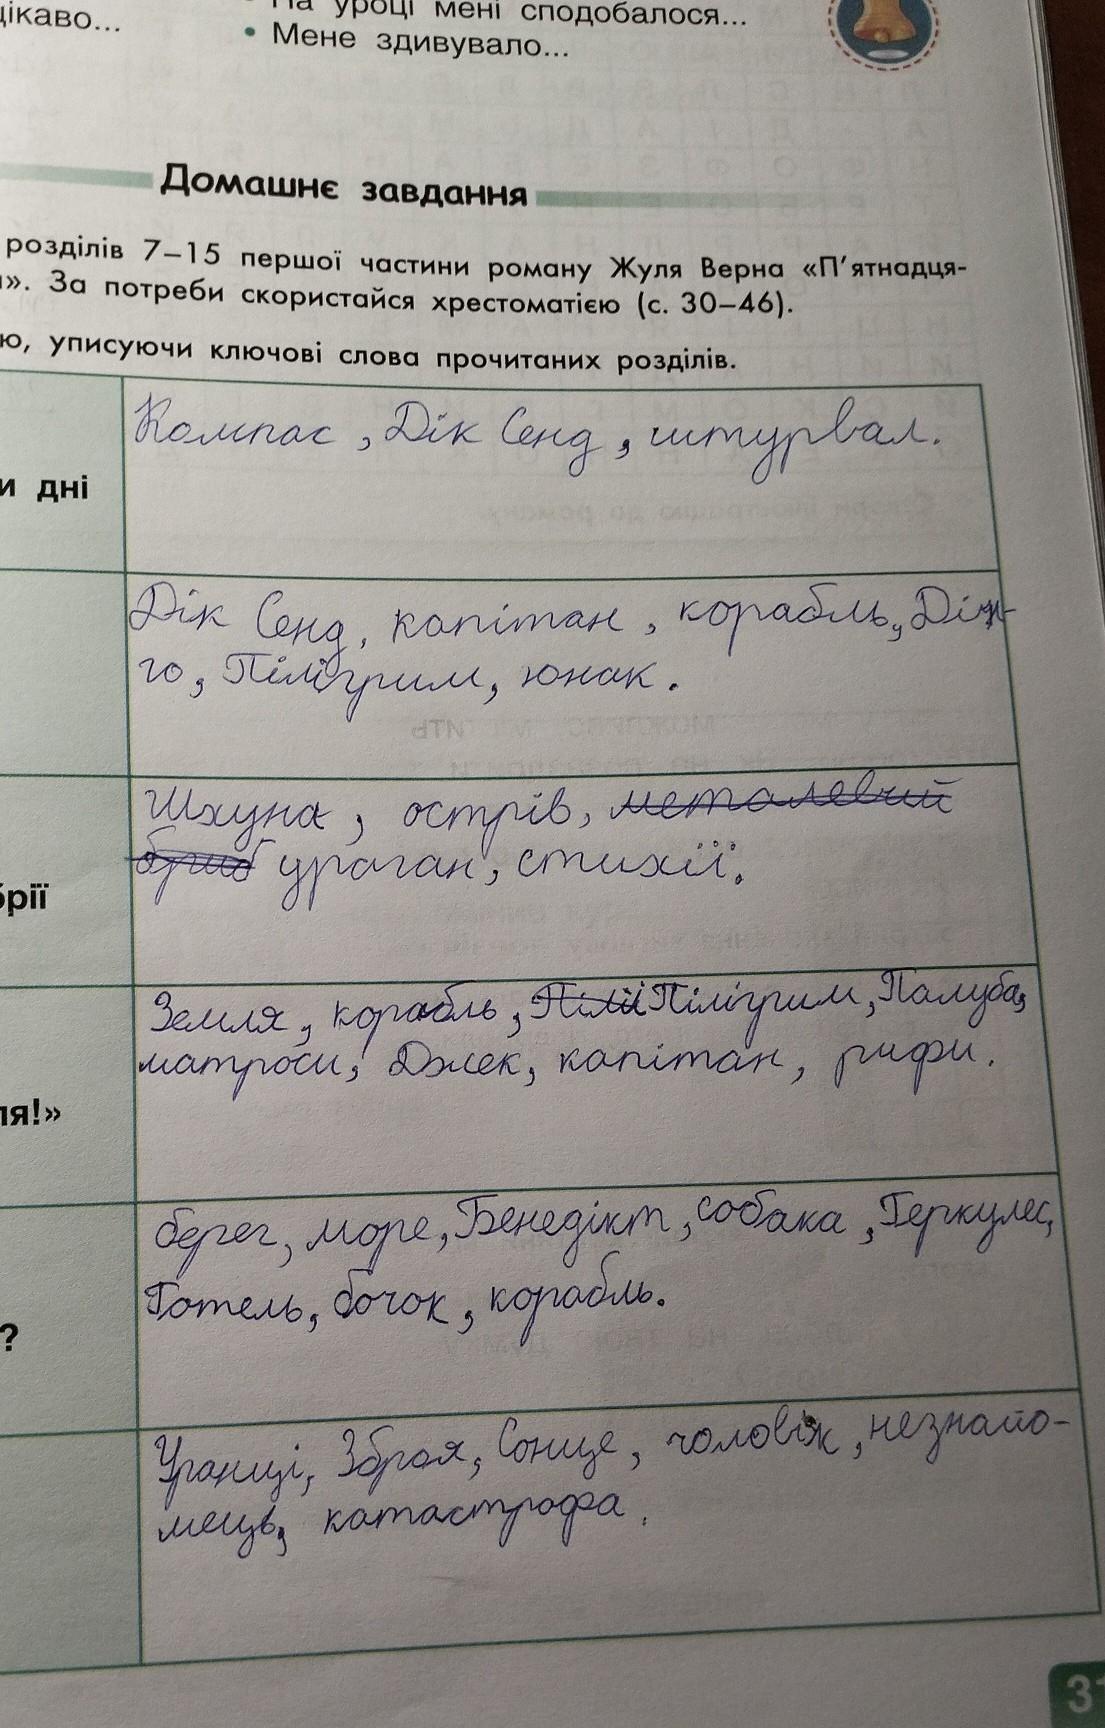 цікаво...
• На уроці мені сподобалося...
• Мене здивувало...
Домашнє завдання
розділів 7–15 першої частини роману Жуля Верна «П’ятнадця-
». За потреби скористайся хрестоматією (с. 30–46).
ю, уписуючи ключові слова прочитаних розділів.
Компас, Дік Сенд, штурвал.
и дні
Дік Сенд, капітан, корабль, Дін-
го, Пілігрим, юнак.
Шхуна, острів, металевий
бриб ураган, стихії.
брії
Земля, корабль, Пілії Пілігрим, Палуба,
матроси, Джек, капітан, рифи.
ля!»
берег, море, Бенедікт, собака, Геркулес,
Готель, бочок, корабль.
?
Уранці, Зброя, Сонце, чоловік, незнайо-
мець, катастрофа.
31